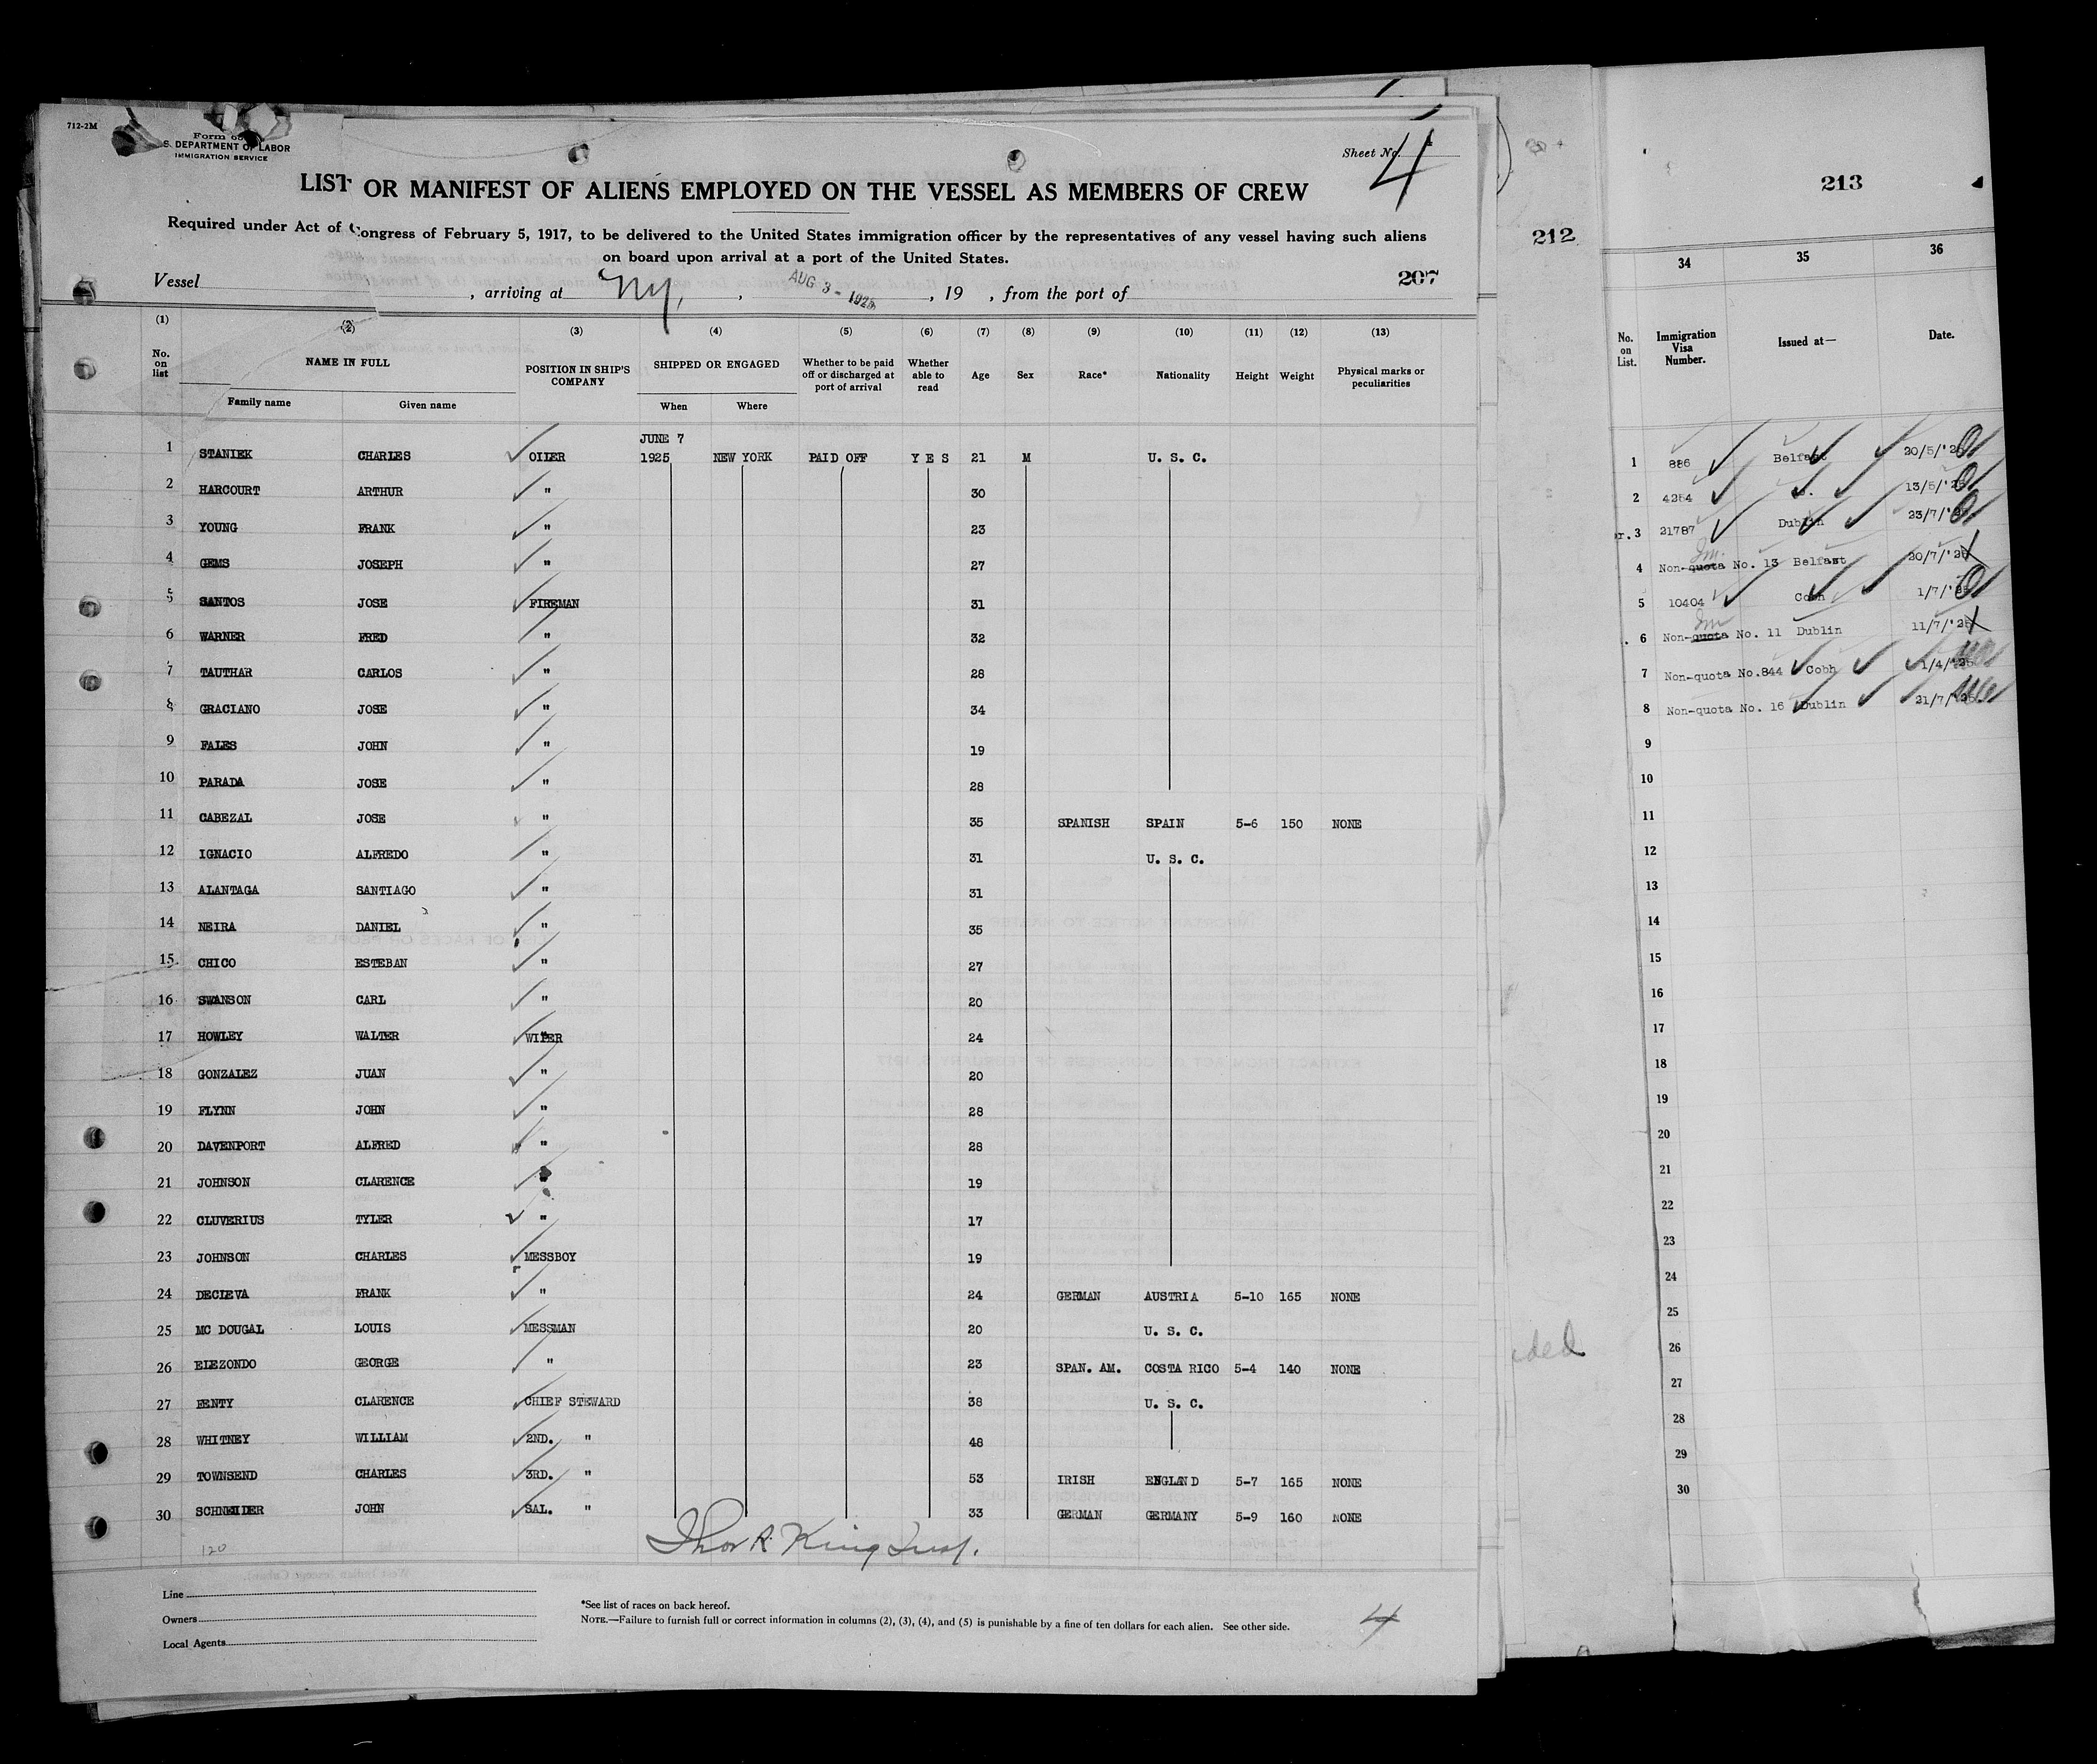 712-2M
Form 68
S. DEPARTMENT OF LABOR
IMMIGRATION SERVICE
Sheet No. 4
LIST OR MANIFEST OF ALIENS EMPLOYED ON THE VESSEL AS MEMBERS OF CREW
Required under Act of Congress of February 5, 1917, to be delivered to the United States immigration officer by the representatives of any vessel having such aliens
on board upon arrival at a port of the United States.
Vessel , arriving at N.Y. , AUG 3 - 1925 , 19 , from the port of 207
(1) (2) (3) (4) (5) (6) (7) (8) (9) (10) (11) (12) (13)
No. on list NAME IN FULL Family name Given name POSITION IN SHIP'S COMPANY SHIPPED OR ENGAGED When Where Whether to be paid off or discharged at port of arrival Whether able to read Age Sex Race* Nationality Height Weight Physical marks or peculiarities
JUNE 7
1 STANIEK CHARLES OILER 1925 NEW YORK PAID OFF YES 21 M U. S. C.
2 HARCOURT ARTHUR " 30
3 YOUNG FRANK " 23
4 GEMS JOSEPH " 27
5 SANTOS JOSE FIREMAN 31
6 WARNER FRED " 32
7 TAUTHAR CARLOS " 28
8 GRACIANO JOSE " 34
9 FALES JOHN " 19
10 PARADA JOSE " 28
11 CABEZAL JOSE " 35 SPANISH SPAIN 5-6 150 NONE
12 IGNACIO ALFREDO " 31 U. S. C.
13 ALANTAGA SANTIAGO " 31
14 NEIRA DANIEL " 35
15 CHICO ESTEBAN " 27
16 SWANSON CARL " 20
17 HOWLEY WALTER WIPER 24
18 GONZALEZ JUAN " 20
19 FLYNN JOHN " 28
20 DAVENPORT ALFRED " 28
21 JOHNSON CLARENCE " 19
22 CLUVERIUS TYLER " 17
23 JOHNSON CHARLES MESSBOY 19
24 DECLEVA FRANK " 24 GERMAN AUSTRIA 5-10 165 NONE
25 MC DOUGAL LOUIS MESSMAN 20 U. S. C.
26 ELEZONDO GEORGE " 23 SPAN. AM. COSTA RICO 5-4 140 NONE
27 FENTY CLARENCE CHIEF STEWARD 38 U. S. C.
28 WHITNEY WILLIAM 2ND. " 48
29 TOWNSEND CHARLES 3RD. " 53 IRISH ENGLAND 5-7 165 NONE
30 SCHNEIDER JOHN SAL. " 33 GERMAN GERMANY 5-9 160 NONE
120
Thos R. King Insp.
Line
Owners
Local Agents
*See list of races on back hereof.
NOTE.—Failure to furnish full or correct information in columns (2), (3), (4), and (5) is punishable by a fine of ten dollars for each alien. See other side.
4
212
213
34 35 36
No. on List. Immigration Visa Number. Issued at— Date.
1 886 Belfast 20/5/'25
2 4254 13/5/'25
3 21787 Dublin 23/7/'25
4 Non-quota No. 13 Belfast 20/7/'25
5 10404 Cobh 1/7/'25
6 Non-quota No. 11 Dublin 11/7/'25
7 Non-quota No.844 Cobh 1/4/'25
8 Non-quota No. 16 Dublin 21/7/'25
9
10
11
12
13
14
15
16
17
18
19
20
21
22
23
24
25
26
27
28
29
30